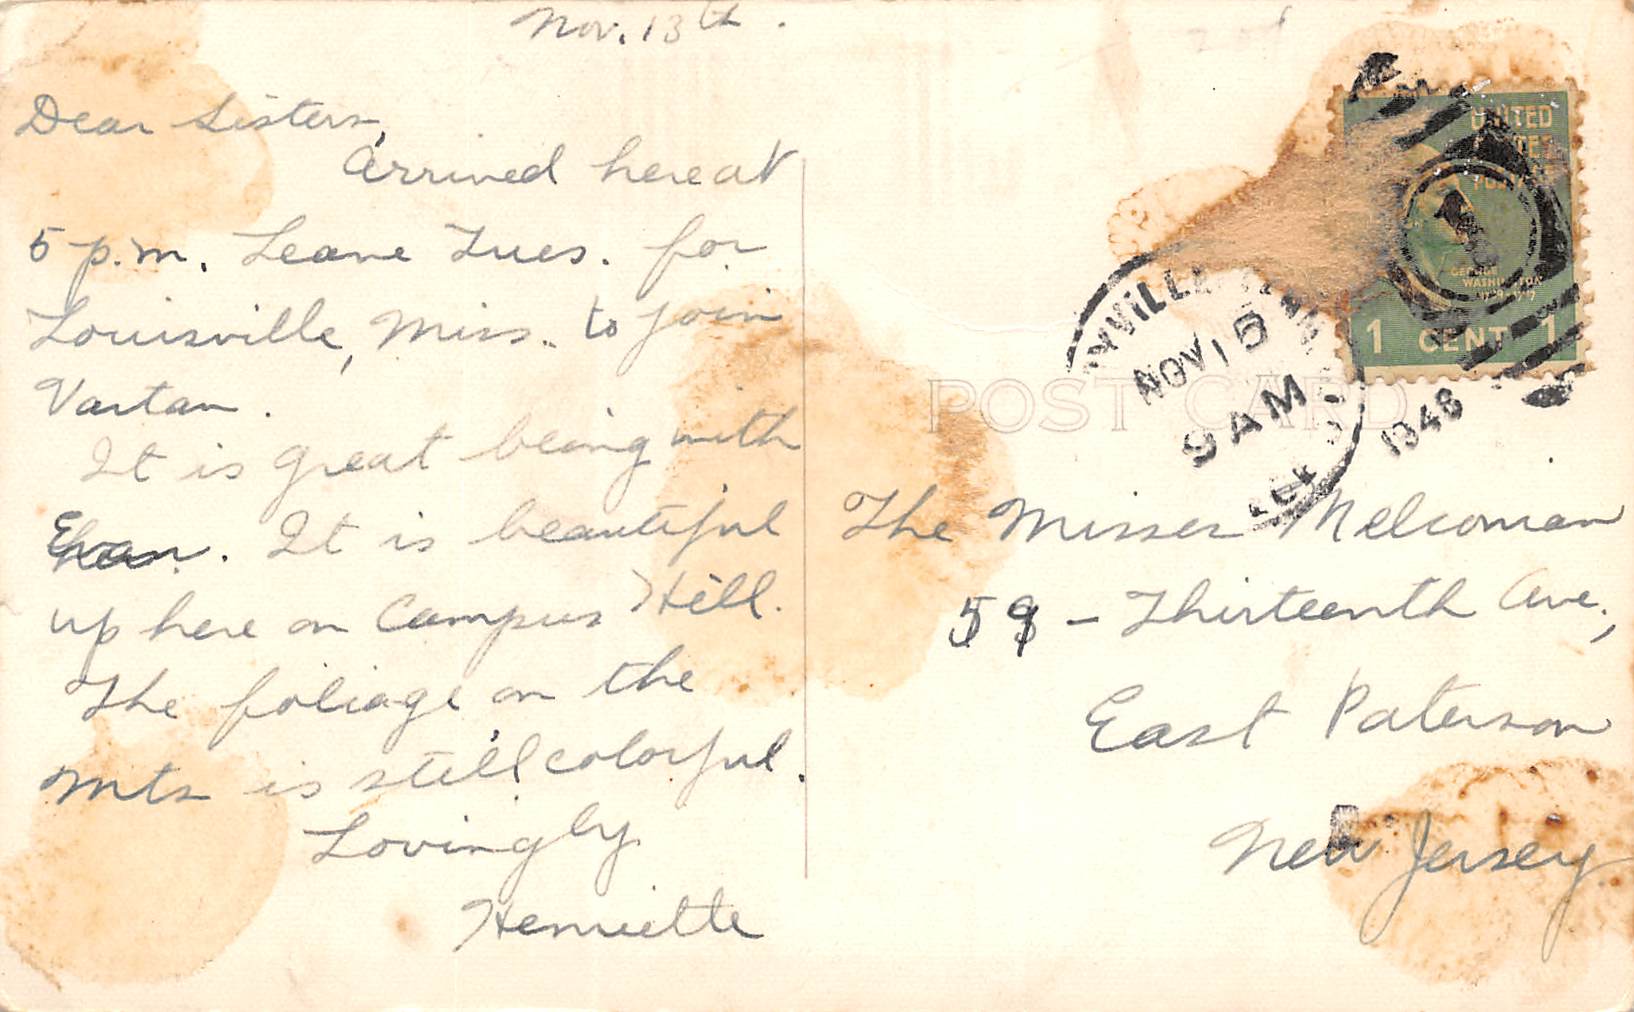 Nov. 13th.
Dear Sisters,
Arrived here at
5 p.m. Leave Tues. for
Louisville, Miss. to join
Vartan.
It is great being with
Evan. It is beautiful
up here on Campus Hill.
The foliage on the
mts is still colorful.
Lovingly
Henriette
UNITED
STATES
POSTAGE
GEORGE
WASHINGTON
1789-1797
1 CENT 1
NOV 15
9 AM
1948
POST CARD
The Misses Melcoman
59 - Thirteenth Ave.,
East Paterson
New Jersey